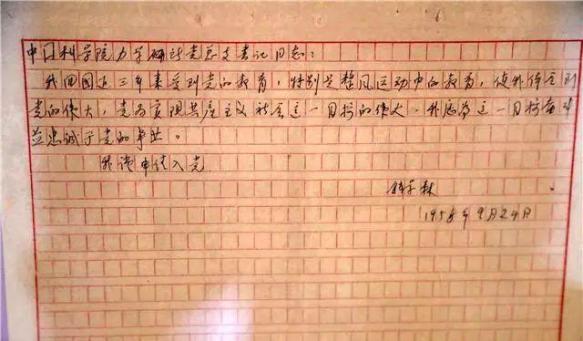 中国科学院力学研究所党总支书记同志：
我回国近三年来受到党的教育，特别是整风运动中的教育，使我体会到
党的伟大，党为实现共产主义社会这一目标的伟大，我愿为这一目标奋斗
并忠诚于党的事业。
我谨申请入党
钱学森
1958年9月24日